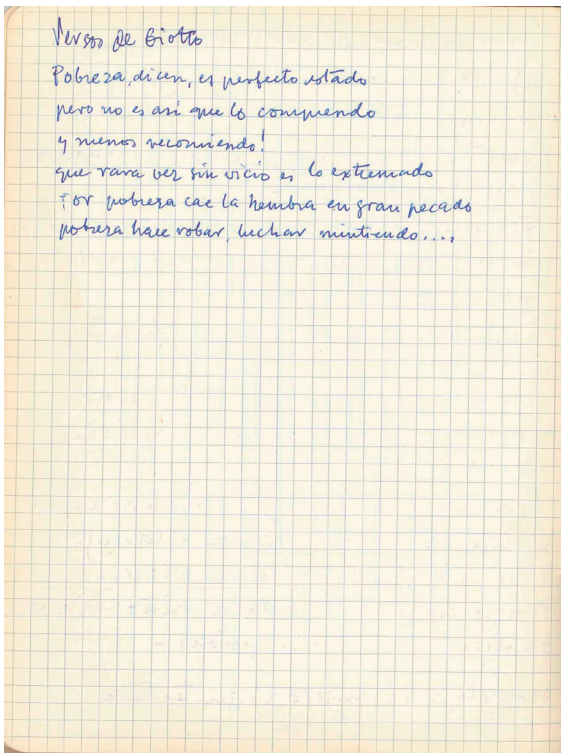 Versos de Giotto
Pobreza, dicen, es perfecto estado
pero no es así que lo comprendo
y menos recomiendo!
que rara vez sin vicio es lo extremado
Por pobreza cae la hembra en gran pecado
pobreza hace robar, luchar mintiendo....